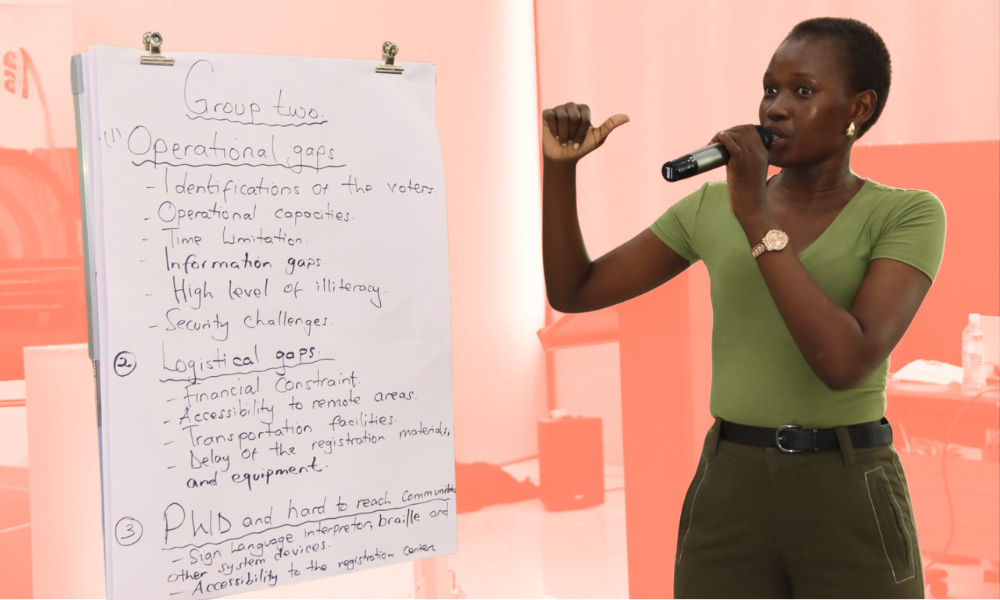 Group two.
(1) Operational gaps
- Identifications of the voters
- Operational capacities.
- Time Limitation.
- Information gaps.
- High level of illiteracy.
- Security challenges.
(2) Logistical gaps.
- Financial Constraint.
- Accessibility to remote areas.
- Transportation facilities.
- Delay of the registration materials,
and equipment.
(3) PWD and hard to reach Communities
- Sign Language interpretors, braille and
other system devices.
- Accessibility to the registration center